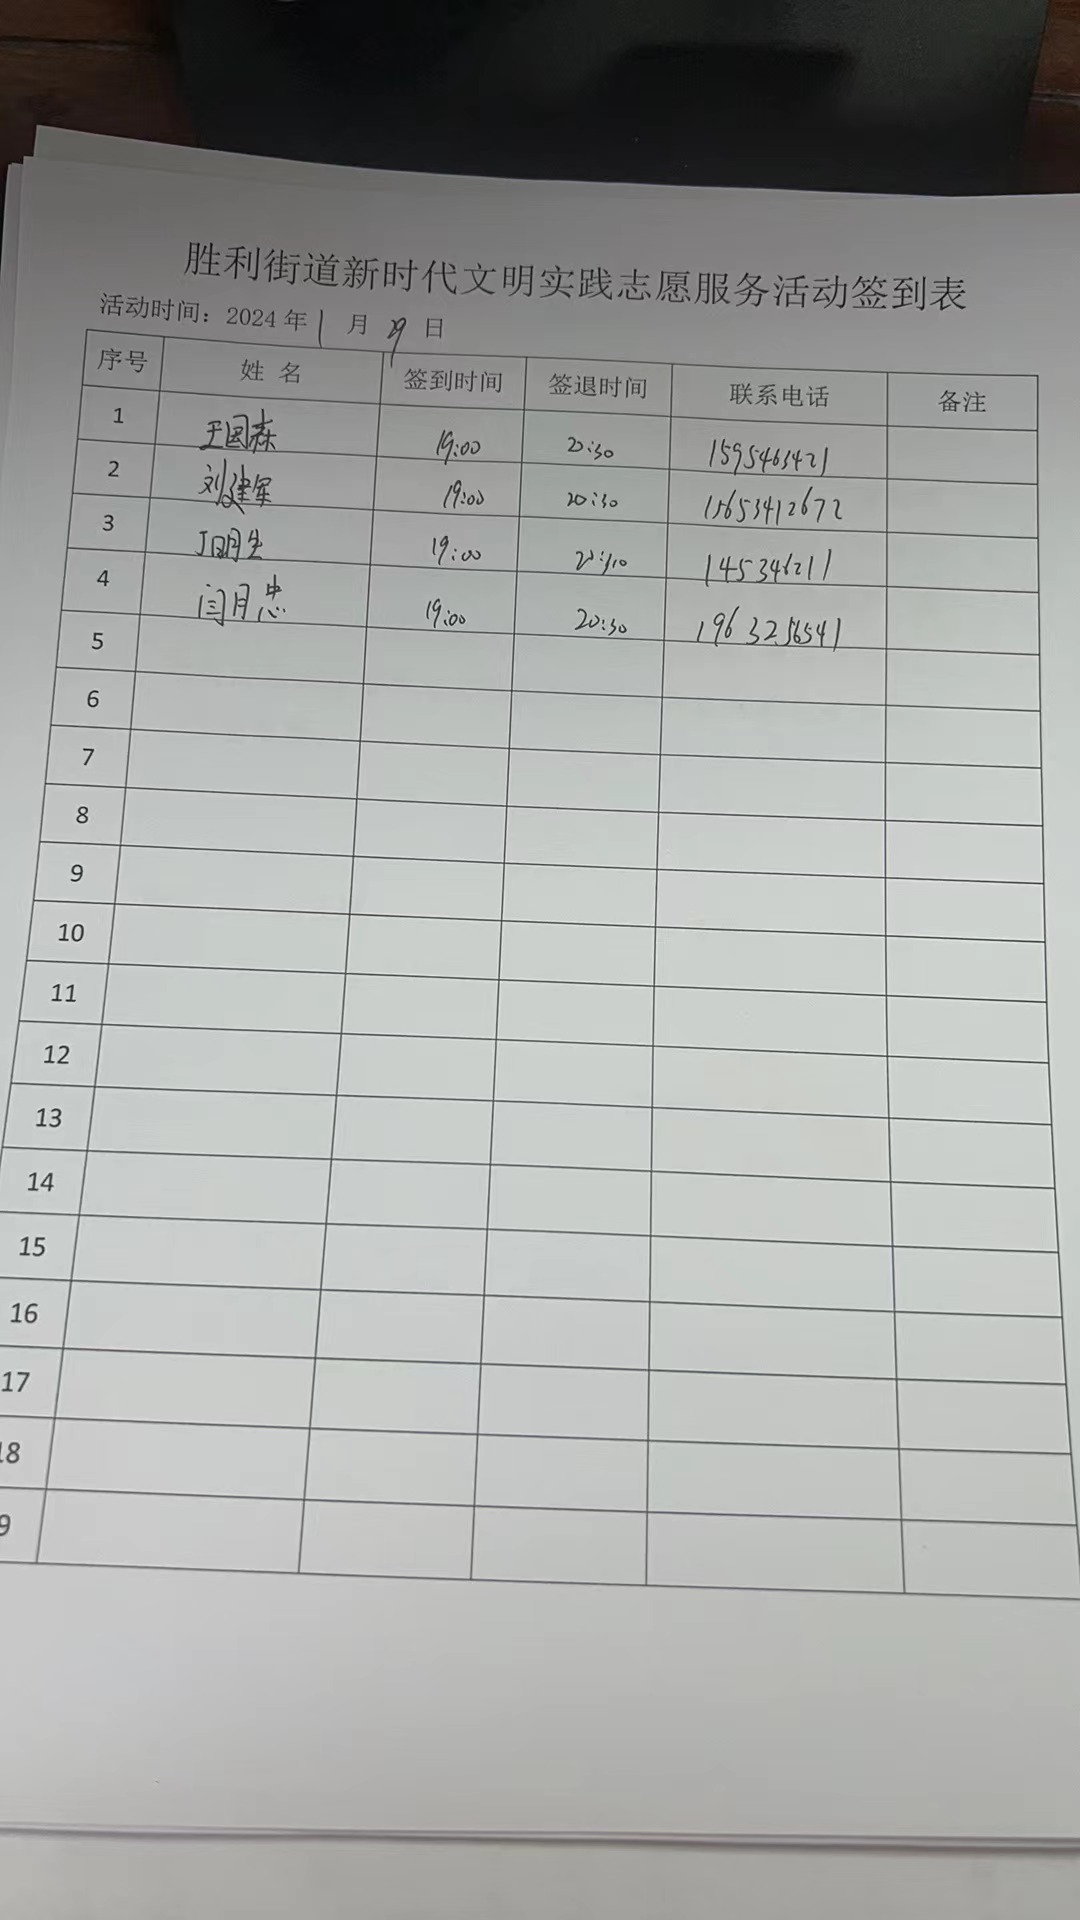 胜利街道新时代文明实践志愿服务活动签到表
活动时间：2024 年 1 月 29 日
序号 姓 名 签到时间 签退时间 联系电话 备注
1 王国森 19:00 20:30 1595463421
2 刘建军 19:00 20:30 15653412672
3 丁明生 19:00 145346211
4 闫月忠 19:00 20:30 1963256541
5
6
7
8
9
10
11
12
13
14
15
16
17
18
9